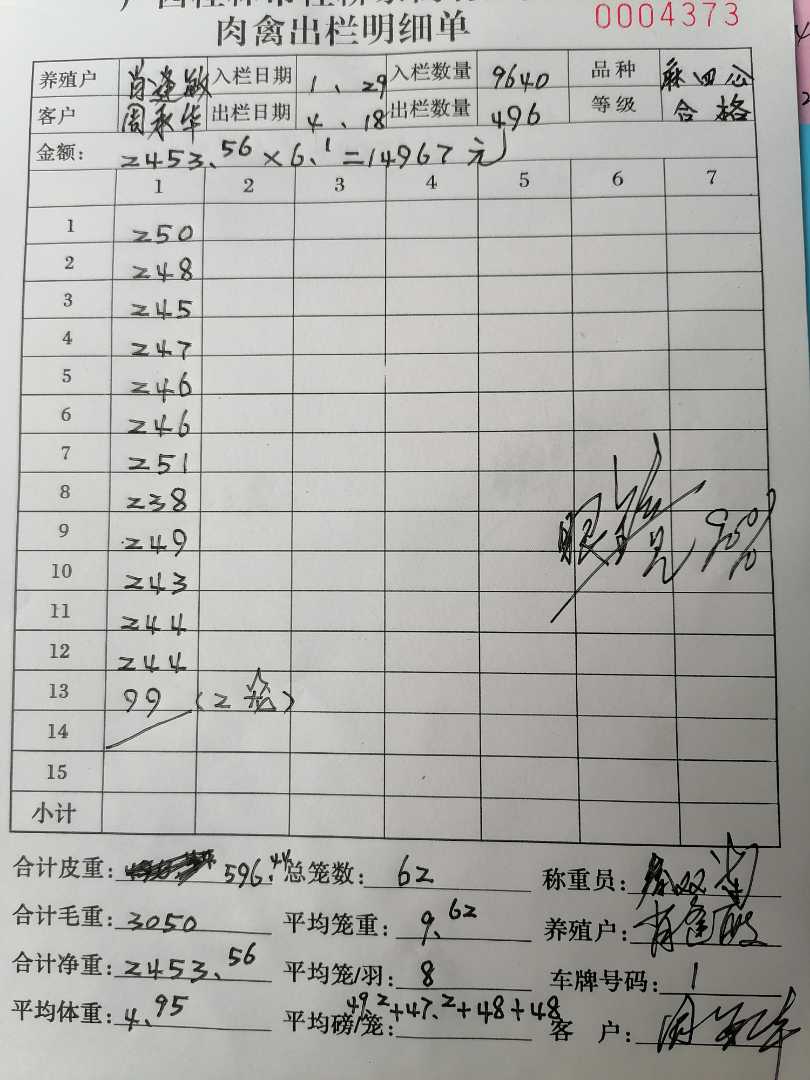 0004373
肉禽出栏明细单
养殖户 肖逢敏 入栏日期 1、29 入栏数量 9640 品种 麻四公
客户 周永华 出栏日期 4、18 出栏数量 496 等级 合格
金额: 2453.56×6.1=14967元
1 2 3 4 5 6 7
1 250
2 248
3 245
4 247
5 246
6 246
7 251
8 238
9 249
10 243
11 244
12 244
13 99 (2笼)
14
15
小计
合计皮重: 596.44 总笼数: 62 称重员:
合计毛重: 3050 平均笼重: 9.62 养殖户: 肖逢敏
合计净重: 2453.56 平均笼/羽: 8 车牌号码: 1
平均体重: 4.95 平均磅/笼: 49.2+47.2+48+48 客 户: 周永华